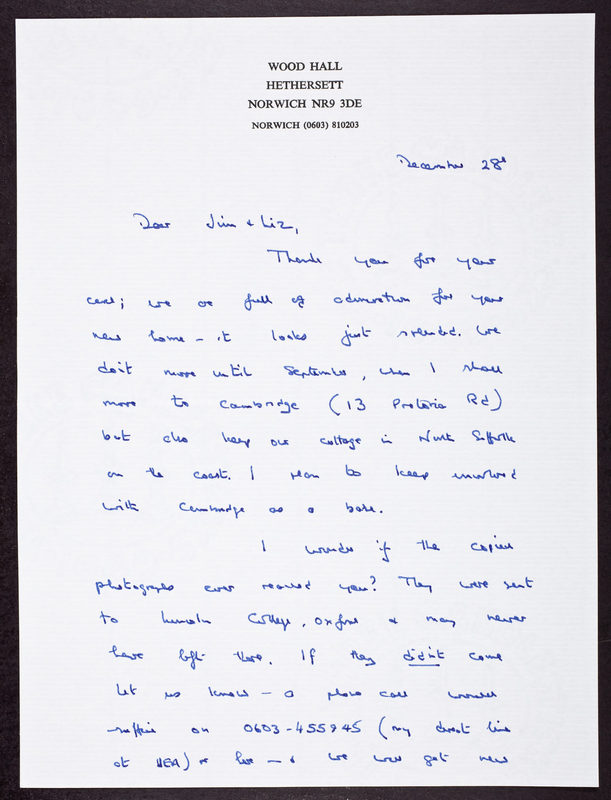 WOOD HALL
HETHERSETT
NORWICH NR9 3DE
NORWICH (0603) 810203
December 28th
Dear Jim & Liz,
Thank you for your
card; we are full of admiration for your
new home - it looks just splendid. We
don't move until September, when I shall
move to Cambridge (13 Pretoria Rd)
but also keep our cottage in North Suffolk
on the coast. I plan to keep involved
with Cambridge as a base.
I wonder if the copied
photographs ever reached you? They were sent
to Lincoln College, Oxford & may never
have left there. If they didn't come
let us know - a phone call would
suffice on 0603-455945 (my direct line
at UEA) or here - & we will get new